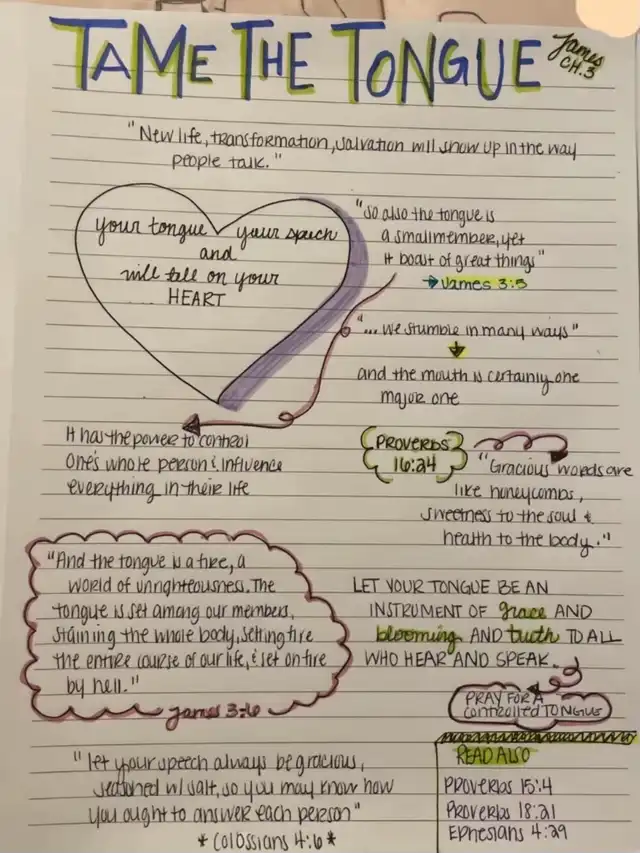 TAME THE TONGUE
James
CH. 3
"New life, transformation, salvation will show up in the way
people talk."
your tongue your speech
and
will tell on your
HEART
"so also the tongue is
a small member, yet
it boast of great things"
James 3:5
"... we stumble in many ways"
and the mouth is certainly one
major one
It has the power to control
One's whole person & influence
everything in their life
PROVERBS
16:24
"Gracious words are
like honeycombs,
sweetness to the soul &
health to the body."
"And the tongue is a fire, a
world of unrighteousness. The
tongue is set among our members,
staining the whole body, setting fire
the entire course of our life, & set on fire
by hell."
James 3:6
LET YOUR TONGUE BE AN
INSTRUMENT OF grace AND
blooming AND truth TO ALL
WHO HEAR AND SPEAK.
PRAY FOR A
controlled TONGUE
"let your speech always be gracious,
seasoned w/ salt, so you may know how
you ought to answer each person"
*Colossians 4:6*
READ ALSO
Proverbs 15:4
Proverbs 18:21
Ephesians 4:29